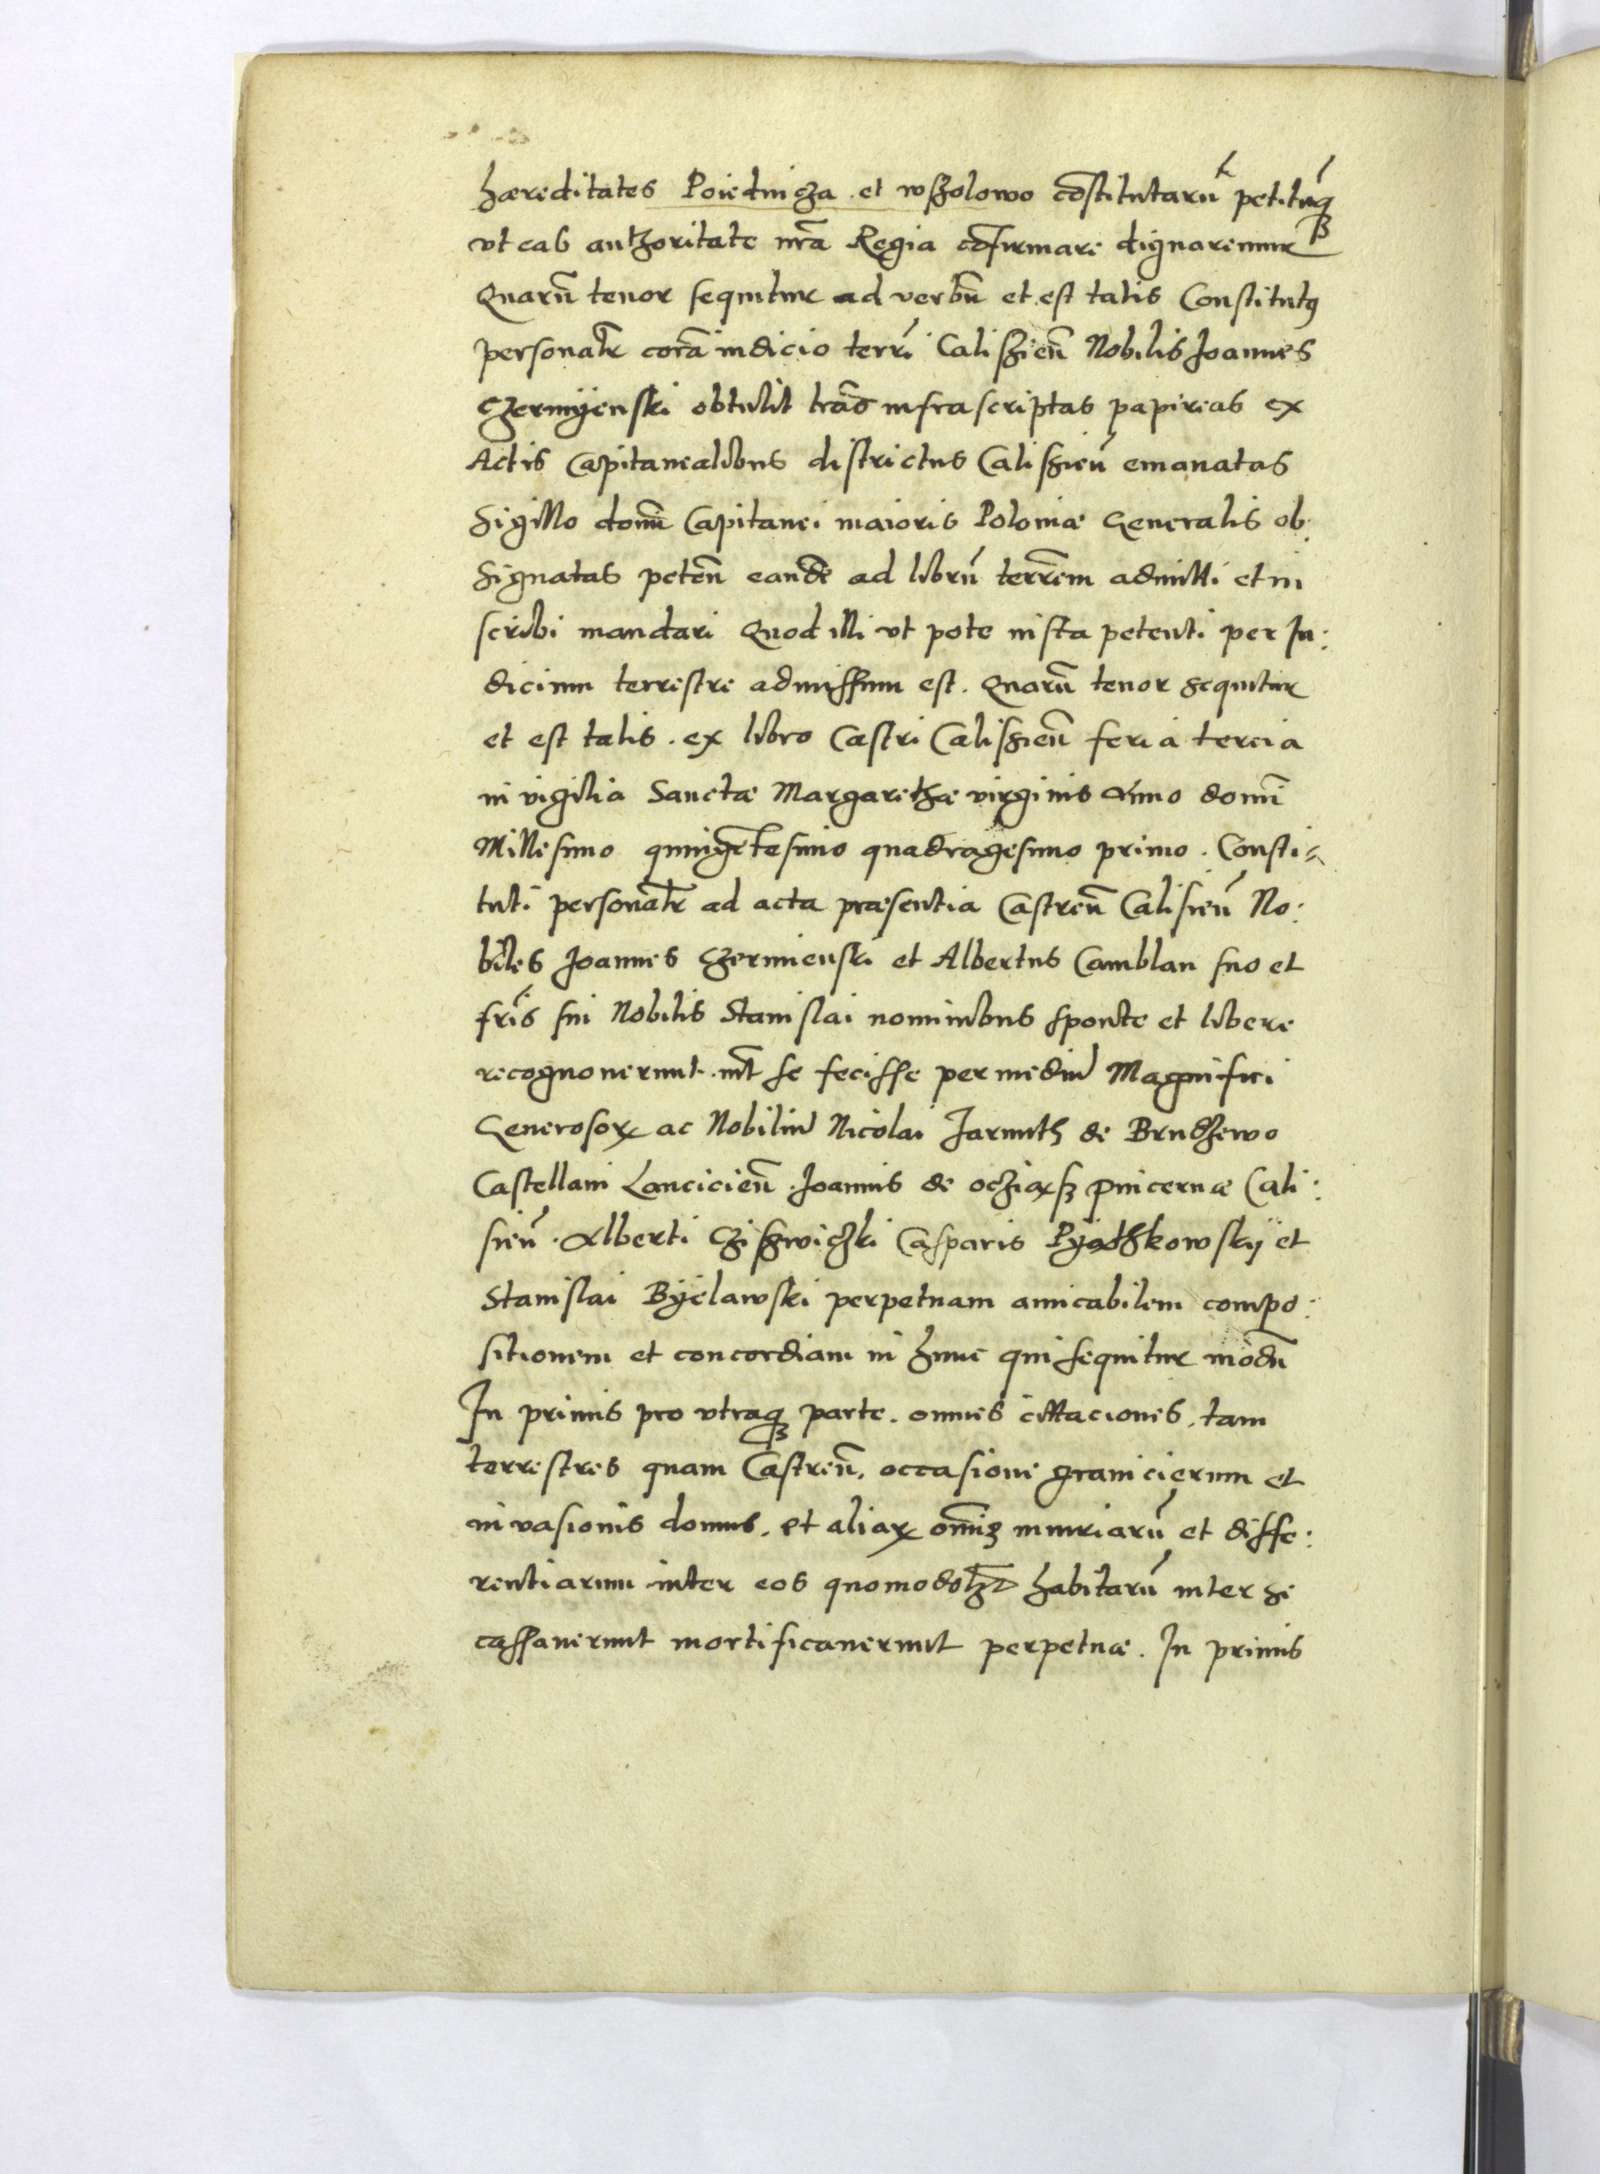 hæreditates Poiednicza et wszolowo cōstitutarū petitūq3
vt eas authoritate nr̄a Regia cōfirmare dignaremur
Quarū tenor sequitur ad verbū et est talis Constitut9
personalr̄ corā iudicio terrī Caliszien̄ Nobilis Joannes
Czermÿenski obtulit lrās infrascriptas papireas ex
Actis Capitanealibus districtus Caliszien̄ emanatas
Sigillo domī Capitanei maioris Poloniæ Generalis ob:
signatas peten̄ eandē ad librū terrēm admitti et in
scribi mandari Quod illi vt pote iusta petenti per Iu:
dicium terrestre admissum est. Quarū tenor sequitur
et est talis. ex libro Castri Caliszien̄ feria tercia
in vigilia Sanctæ Margarethæ virginis Anno domī
Millesimo quingētesimo quadragesimo primo. Consti=
tuti personalr̄ ad acta præsentia Castren̄ Calisien̄ No:
biles Joannes Czermienski et Albertus Camblan suo et
fr̄is sui Nobilis Stanislai nominibus sponte et libere
recognouerunt int̄ se fecisse per mediū Magnifici
Generosoꝝ ac Nobiliū Nicolai Jarmuth de Brudzewo
Castellani Lancicien̄. Joannis de ocziaxsz Pincernæ Cali:
sien̄. Alberti Cziszwiczki Casparis Pÿathkowskÿ et
Stanislai Bÿelawski perpetuam amicabilem compo:
sitionem et concordiam in hunc qui sequitur modū
In primis pro vtraq3 parte. omnes cittaciones, tam
terrestres quam Castren̄, occasione granicierum et
inuasionis domus, et aliaꝝ om̄iū iniuriarū et diffe:
rentiarum inter eos quomodolꝫ habitarū inter se
cassauerunt mortificauerunt perpetuæ. In primis